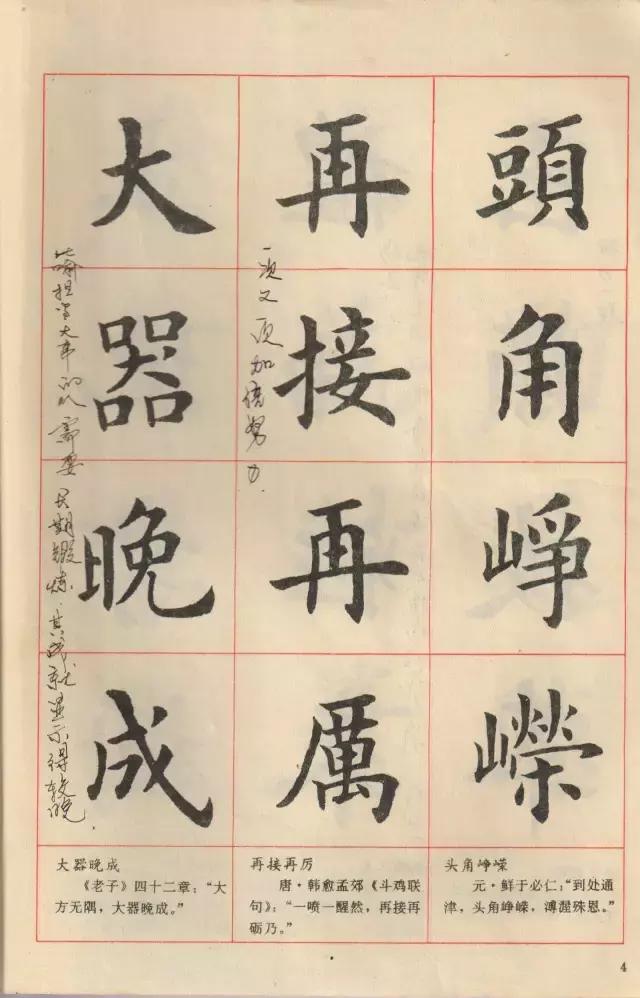 頭角崢嶸
再接再厲
一次又一次加倍努力.
大器晚成
比喻担当大事的人需要长期锻炼.其成就显示得较晚.
大器晚成
《老子》四十二章：“大
方无隅，大器晚成。”
再接再厉
唐·韩愈孟郊《斗鸡联
句》：“一喷一醒然，再接再
砺乃。”
头角峥嵘
元·鲜于必仁：“到处通
津，头角峥嵘，溥渥殊恩。”
4